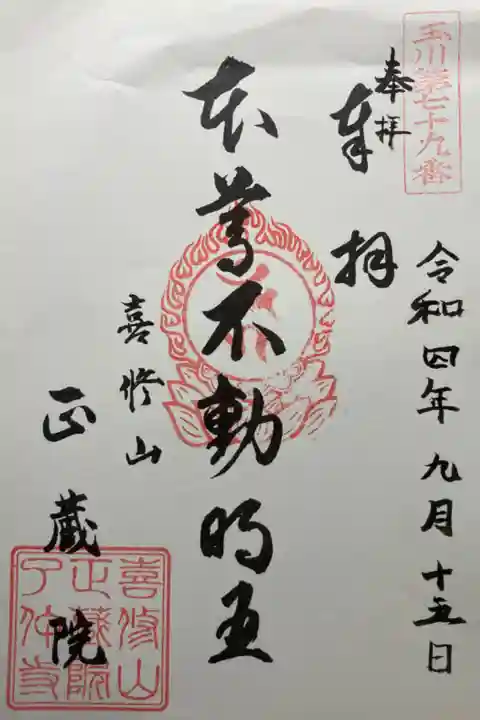 玉川第七十九番
奉拝
奉拝
令和四年九月十五日
本尊不動明王
喜修山
正蔵院
喜修山
正蔵院
了仲寺